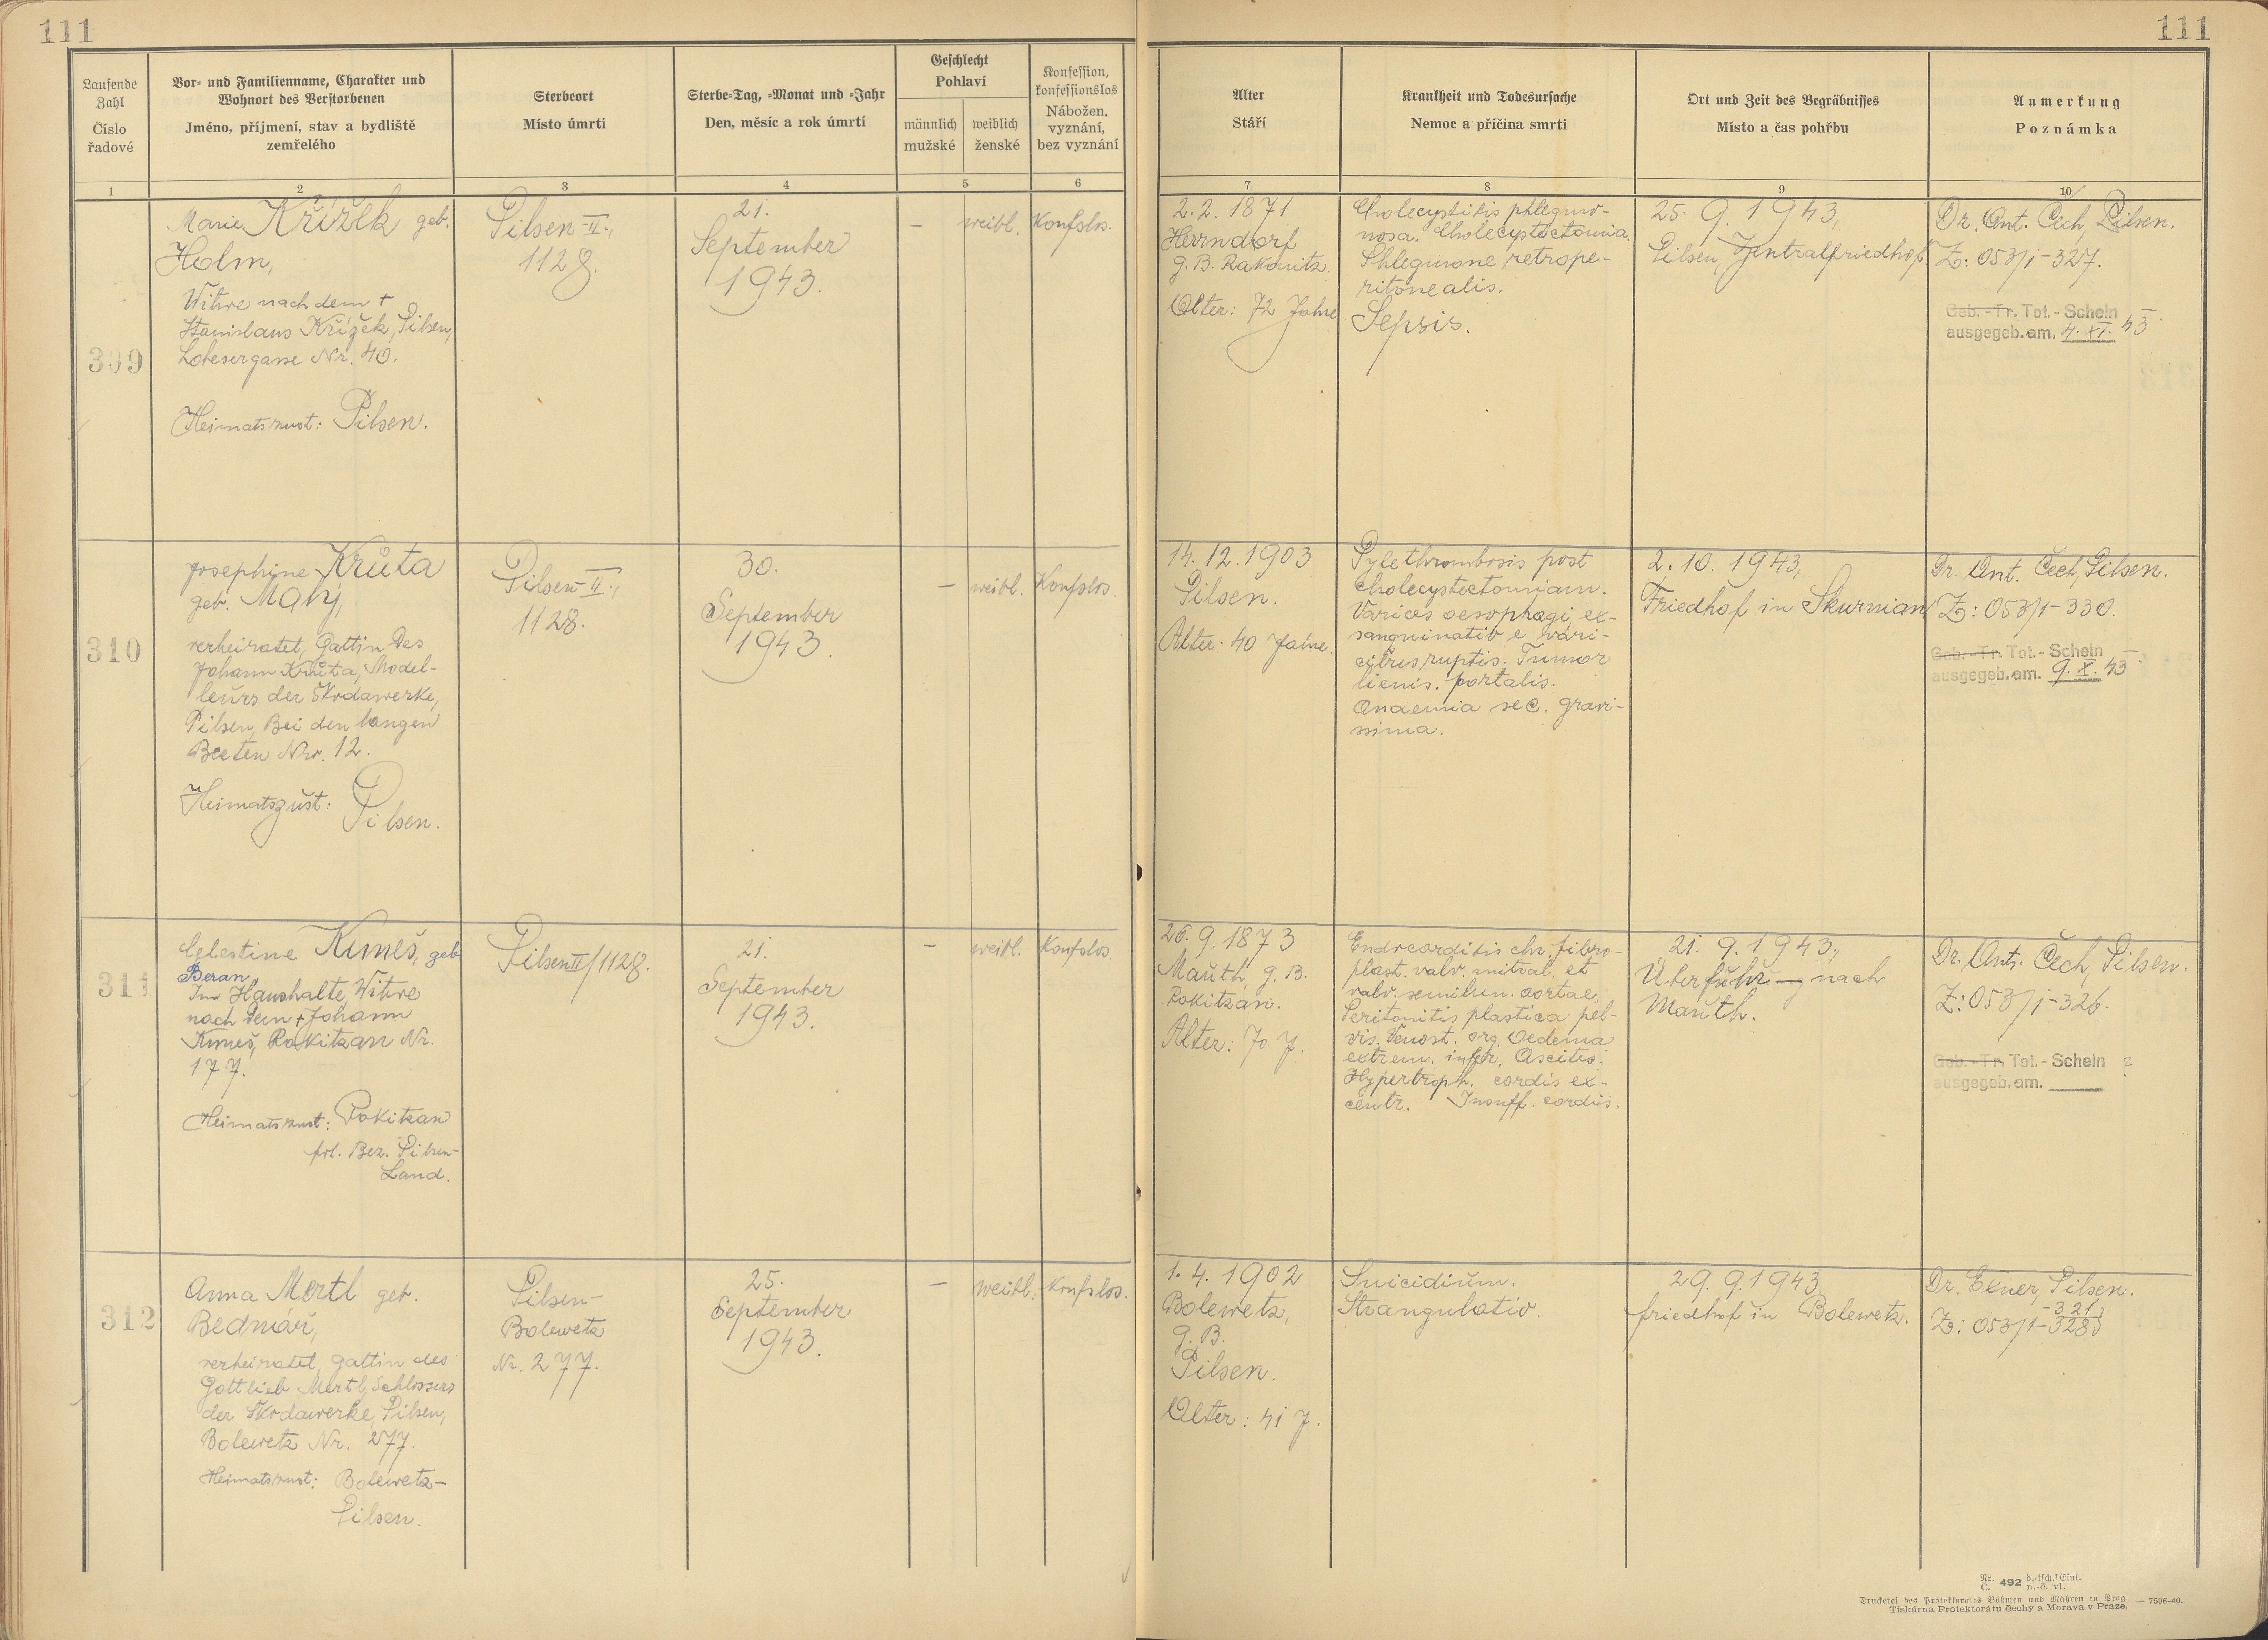 111
111
Laufende
Zahl
Číslo
řadové
Vor- und Familienname, Charakter und
Wohnort des Verstorbenen
Jméno, příjmení, stav a bydliště
zemřelého
Sterbeort
Místo úmrtí
Sterbe-Tag, -Monat und -Jahr
Den, měsíc a rok úmrtí
Geschlecht
Pohlaví
männlich
mužské
weiblich
ženské
Konfession,
konfessionslos
Nábožen.
vyznání,
bez vyznání
Alter
Stáří
Krankheit und Todesursache
Nemoc a příčina smrti
Ort und Zeit des Begräbnisses
Místo a čas pohřbu
Anmerkung
Poznámka
1 2 3 4 5 6 7 8 9 10
309
Marie Křížek geb.
Holm,
Witwe nach dem +
Stanislaus Křížek, Pilsen,
Lobesergasse Nr. 40.
Heimatszust: Pilsen.
Pilsen-II.,
1128.
21.
September
1943.
–
weibl.
Konfslos.
2.2. 1871
Herrndorf
g. B. Rakonitz.
Alter: 72 Jahre
Cholecystitis phlegmo-
nosa. Cholecystectomia.
Phlegmone retrope-
ritonealis.
Sepsis.
25. 9. 1943,
Pilsen, Zentralfriedhof
Dr. Ant. Čech, Pilsen.
Z: 053/1-327.
Geb.-Tr. Tot.-Schein
ausgegeb.am. 4. XI. 43
310
Josephine Krůta
geb. Malý,
verheiratet, Gattin des
Johann Krůta, Model-
leurs der Škodawerke,
Pilsen, Bei den langen
Beeten Nr. 12.
Heimatszust:
Pilsen.
Pilsen-II.,
1128.
30.
September
1943.
–
weibl.
Konfslos.
14. 12. 1903
Pilsen.
Alter: 40 Jahre.
Pylethrombosis post
cholecystectomiam.
Varices oesophagi ex-
sanguinatio e vari-
cibus ruptis. Tumor
lienis. portalis.
Anaemia sec. gravi-
ssima.
2. 10. 1943,
Friedhof in Skurnian
Dr. Ant. Čech, Pilsen.
Z: 053/1-330.
Geb.-Tr. Tot.-Schein
ausgegeb.am. 9. X. 43
311
Celestine Kuneš, geb
Beran
Im Haushalte, Witwe
nach dem + Johann
Kuneš, Rokitzan Nr.
177.
Heimatszust: Rokitzan
pol. Bez. Pilsen-
Land.
Pilsen II/1128.
21.
September
1943.
–
weibl.
Konfslos.
26. 9. 1873
Mauth, g. B.
Rokitzan.
Alter: 70 J.
Endocarditis chr. fibro-
plast. valv. mitral. et
valv. semilun. aortae.
Peritonitis plastica pel-
vis. Venost. org. Oedema
extrem. infer. Ascites.
Hypertroph. cordis ex-
centr. Insuff. cordis.
21. 9. 1943.,
Überführ-g nach
Mauth.
Dr. Ant. Čech, Pilsen.
Z: 053/1-326.
Geb.-Tr. Tot.-Schein ?
ausgegeb.am.
312
Anna Mertl geb.
Bednář,
verheiratet, Gattin des
Gottlieb Mertl, Schlossers
der Škodawerke, Pilsen,
Bolewetz Nr. 277.
Heimatszust: Bolewetz-
Pilsen.
Pilsen-
Bolewetz
Nr. 277.
25.
September
1943.
–
weibl.
Konfslos.
1. 4. 1902
Bolewetz,
g. B.
Pilsen.
Alter: 41 J.
Suicidium.
Strangulatio.
29. 9. 1943
friedhof in Bolewetz.
Dr. Exner, Pilsen.
-321
Z: 053/1-328
Nr. 492 d.-tsch. Einl.
Č. n.-č. vl.
Druckerei des Protektorates Böhmen und Mähren in Prag. — 7596-40.
Tiskárna Protektorátu Čechy a Morava v Praze.